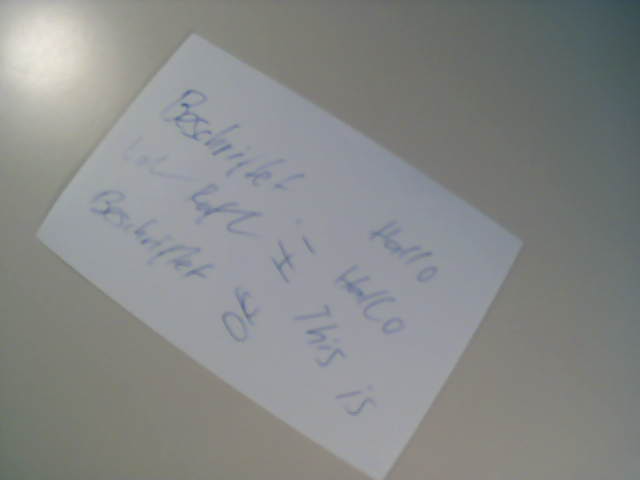 Beschriftet
Hallo
Lol Rofl
Hallo
Beschriftet
This is